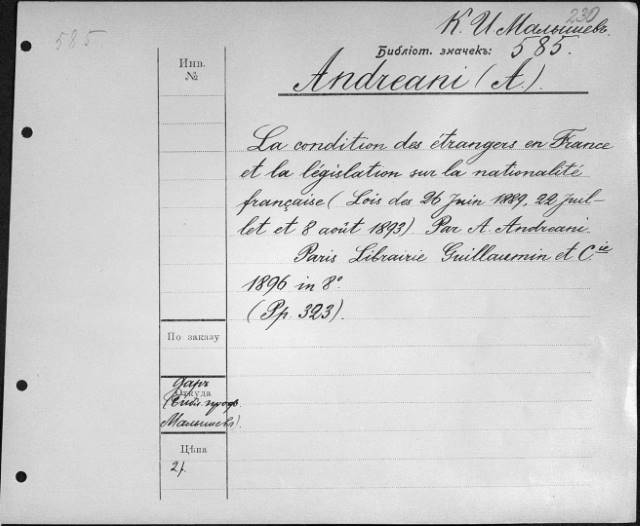 230
К. И Малышевъ.
585
Библіот. значекъ: 585.
Инв.
№
Andreani (A.).
La condition des étrangers en France
et la législation sur la nationalité
française (Lois des 26 Juin 1889, 22 Juil-
let et 8 août 1893) Par A. Andreani.
Paris Librairie Guillaumin et C.ie
1896 in 8°
(Pp. 323).
По заказу
Даръ
Откуда
Малышевъ).
Цѣна
2 р.